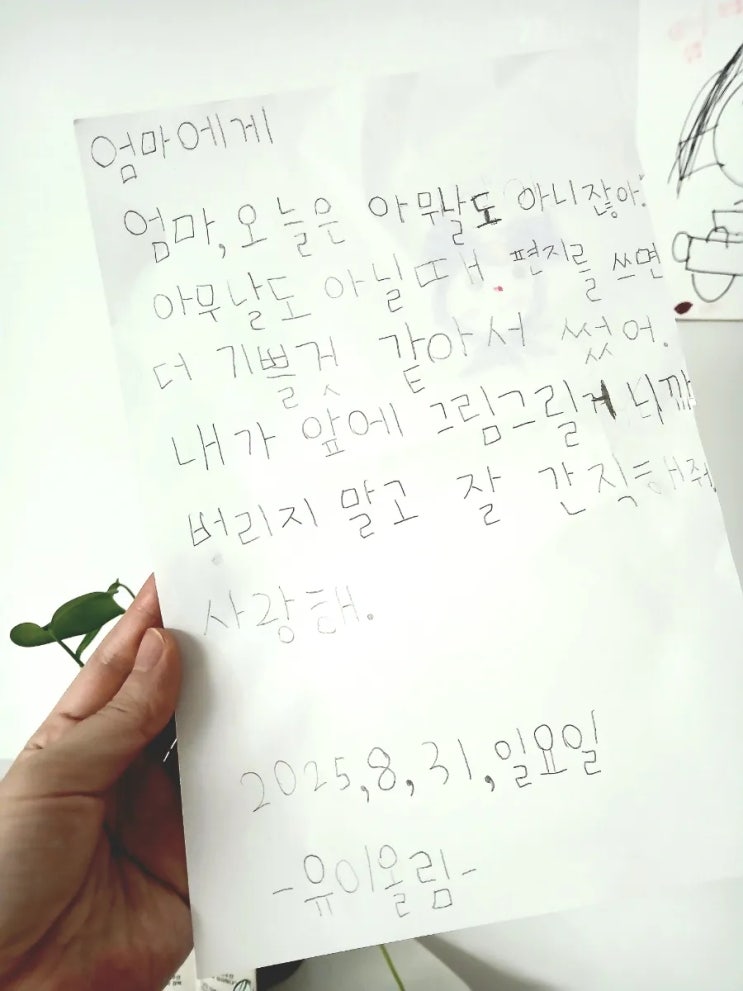 엄마에게
엄마, 오늘은 아무날도 아니잖아.
아무날도 아닐때 편지를 쓰면
더 기쁠것 같아서 썼어.
내가 앞에 그림그릴거니까
버리지 말고 잘 간직해줘.
사랑해.
2025,8,31,일요일
-유이올림-